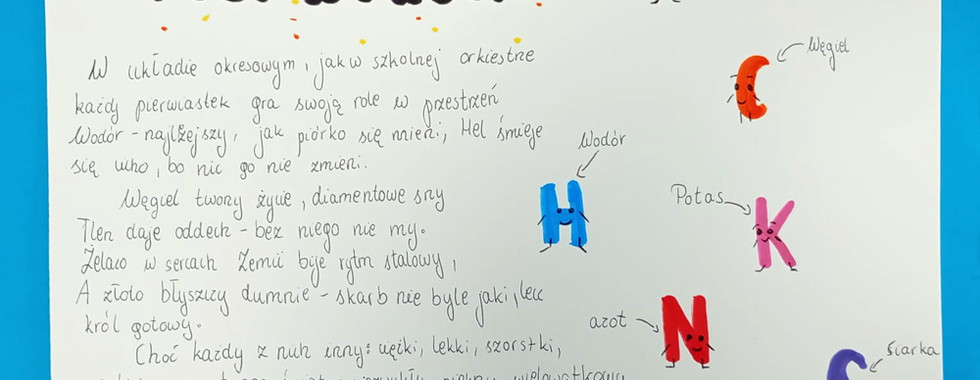 W układie okresowym, jak w szkolnej orkiestrze
każdy pierwiastek gra swoją role w przestrzeń
Wodór - najlżejszy, jak piórko się mieni, Hel śmieje
się cicho, bo nic go nie zmieni.
Węgiel tworzy życie, diamentowe sny
Tlen daje oddech - bez niego nie my.
Żelazo w sercach Ziemi bije rytm stalowy,
A złoto błyszczy dumnie - skarb nie byle jaki, lecz
król gotowy.
Choć każdy z nich inny: ciężki, lekki, szorstki,
Węgiel
C
Wodór
H
Potas
K
azot
N
Siarka